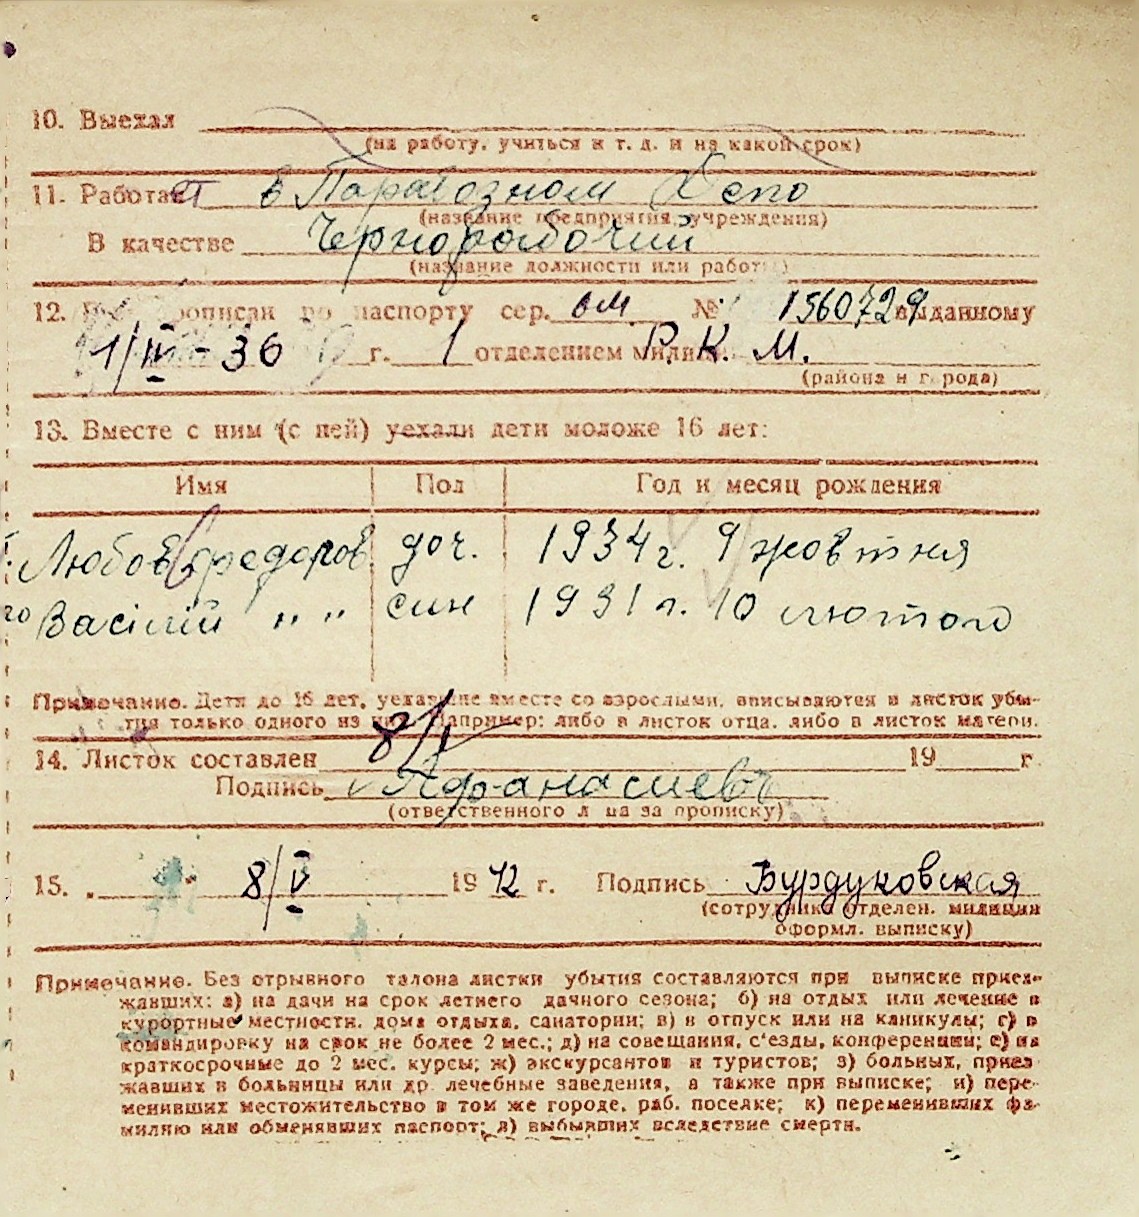 10. Выехал
(на работу, учиться и т. д. и на какой срок)
11. Работает в Паравозном Депо
(название предприятия, учреждения)
В качестве Чернорабочий
(название должности или работы)
12. прописан по паспорту сер. ОМ № 1560729 выданному
1/IV - 36 г. 1 отделением милиц. Р. К. М.
(района и города)
13. Вместе с ним (с ней) уехали дети моложе 16 лет:
Имя Пол Год и месяц рождения
Любов Федоров. доч. 1934 г. 9 жовтня
Васілій " " син 1931 г. 10 лютого
Примечание. Дети до 16 лет, уехавшие вместе со взрослыми, вписываются в листок убы-
тия только одного из них. Например: либо в листок отца, либо в листок матери.
14. Листок составлен 8/V 19 г.
Подпись Афанасиевъ
(ответственного лица за прописку)
15. 8/V 1942 г. Подпись Бурдуковская
(сотрудника отделен. милиции
оформл. выписку)
Примечание. Без отрывного талона листки убытия составляются при выписке приез-
жавших: а) на дачи на срок летнего дачного сезона; б) на отдых или лечение в
курортные местности, дома отдыха, санатории; в) в отпуск или на каникулы; г) в
командировку на срок не более 2 мес.; д) на совещания, с'езды, конференции; е) на
краткосрочные до 2 мес. курсы; ж) экскурсантов и туристов; з) больных, приез-
жавших в больницы или др. лечебные заведения, а также при выписке; и) пере-
менивших местожительство в том же городе, раб. поселке; к) переменивших фа-
милию или обменявших паспорт; л) выбывших вследствие смерти.